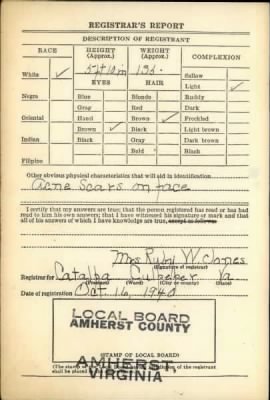 REGISTRAR'S REPORT
DESCRIPTION OF REGISTRANT
RACE HEIGHT (Approx.) WEIGHT (Approx.) COMPLEXION
5 ft 10 in 130.
White ✓ EYES HAIR Sallow
Light ✓
Negro Blue Blonde Ruddy
Gray Red Dark
Oriental Hazel Brown ✓ Freckled
Brown ✓ Black Light brown
Indian Black Gray Dark brown
Bald Black
Filipino
Other obvious physical characteristics that will aid in identification
Acne Scars on face
I certify that my answers are true; that the person registered has read or has had
read to him his own answers; that I have witnessed his signature or mark and that
all of his answers of which I have knowledge are true, except as follows:
Mrs Ruby W. Jones
(Signature of registrar)
Registrar for Catalpa Culpeper Va
(Precinct) (Ward) (City or county) (State)
Date of registration Oct. 16, 1940
LOCAL BOARD
AMHERST COUNTY
(STAMP OF LOCAL BOARD)
AMHERST
VIRGINIA